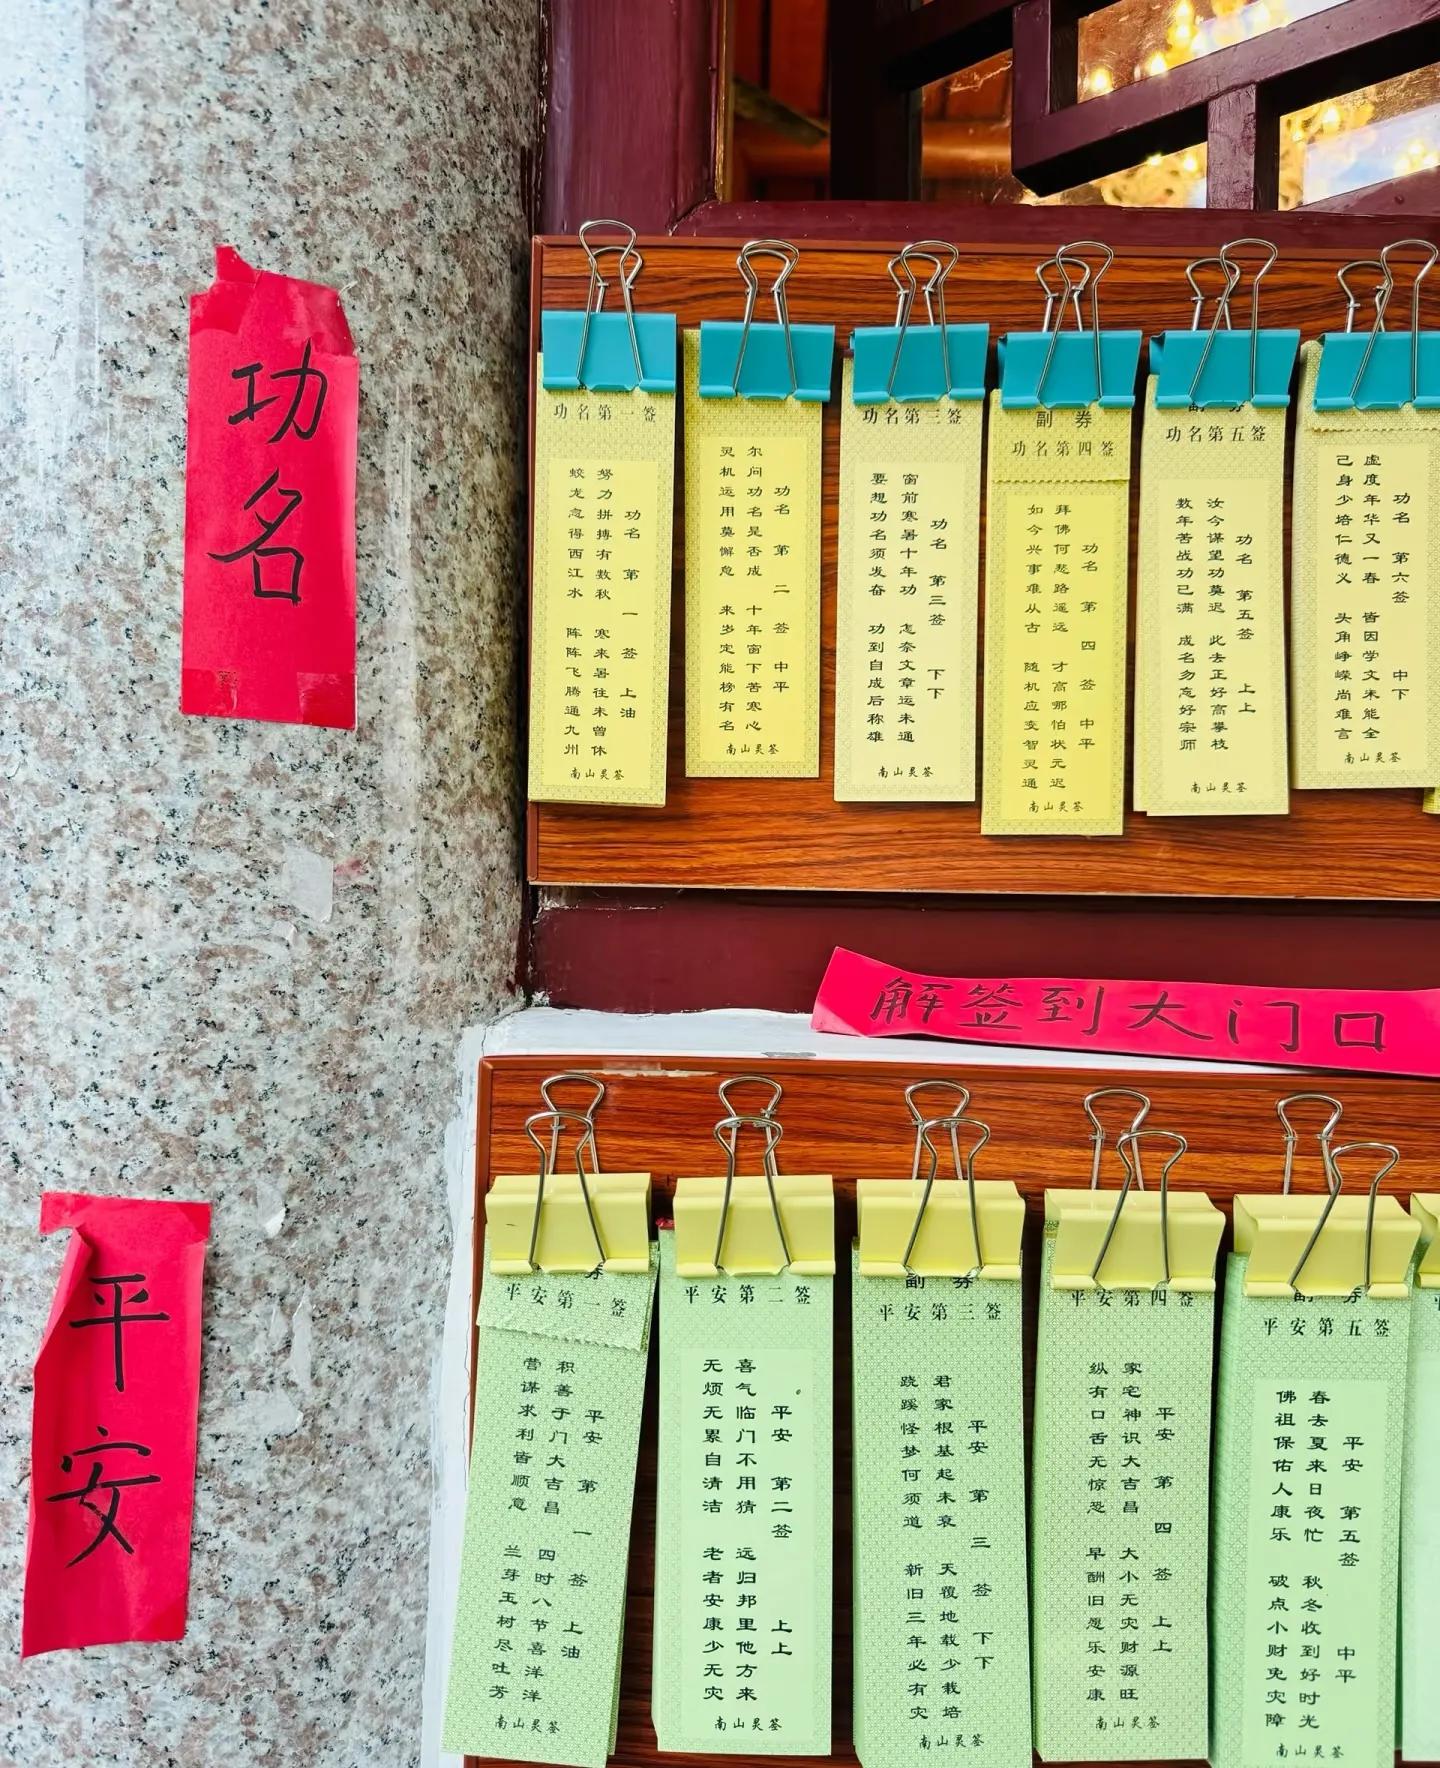 功名
功名第一签
功名 第一签 上油
努力拼搏有数秋 寒来暑往未曾休
蛟龙忽得西江水 阵阵飞腾通九州
南山灵签
功名 第二签 中平
尔问功名是否成 十年窗下苦寒心
灵机运用莫懈怠 来岁定能榜有名
南山灵签
功名第三签
功名 第三签 下下
窗前寒暑十年功 怎奈文章运未通
要想功名须发奋 功到自成后称雄
南山灵签
副券
功名第四签
功名 第四签 中平
拜佛何愁路遥远 才高哪怕状元迟
如今兴事难从古 随机应变智灵通
南山灵签
副券
功名第五签
功名 第五签 上上
汝今谋望功莫迟 此去正好高攀枝
数年苦战功已满 成名勿忘好宗师
南山灵签
功名 第六签 中下
虚度年华又一春 皆因学文未能全
己身少培仁德义 头角峥嵘尚难言
南山灵签
解签到大门口
平安
券
平安第一签
平安 第一签 上油
积善于门大吉昌 四时八节喜洋洋
营谋求利皆顺意 兰芽玉树尽吐芳
南山灵签
平安第二签
平安 第二签 上上
喜气临门不用猜 远归邦里他方来
无烦无累自清洁 老者安康少无灾
南山灵签
副券
平安第三签
平安 第三签 下下
君家根基起未衰 天覆地载少栽培
跷蹊怪梦何须道 新旧三年必有灾
南山灵签
平安第四签
平安 第四签 上上
家宅神识大吉昌 大小无灾财源旺
纵有口舌无惊恐 早酬旧愿乐安康
南山灵签
副券
平安第五签
平安 第五签 中平
春去夏来日夜忙 秋冬收到好时光
佛祖保佑人康乐 破点小财免灾障
南山灵签